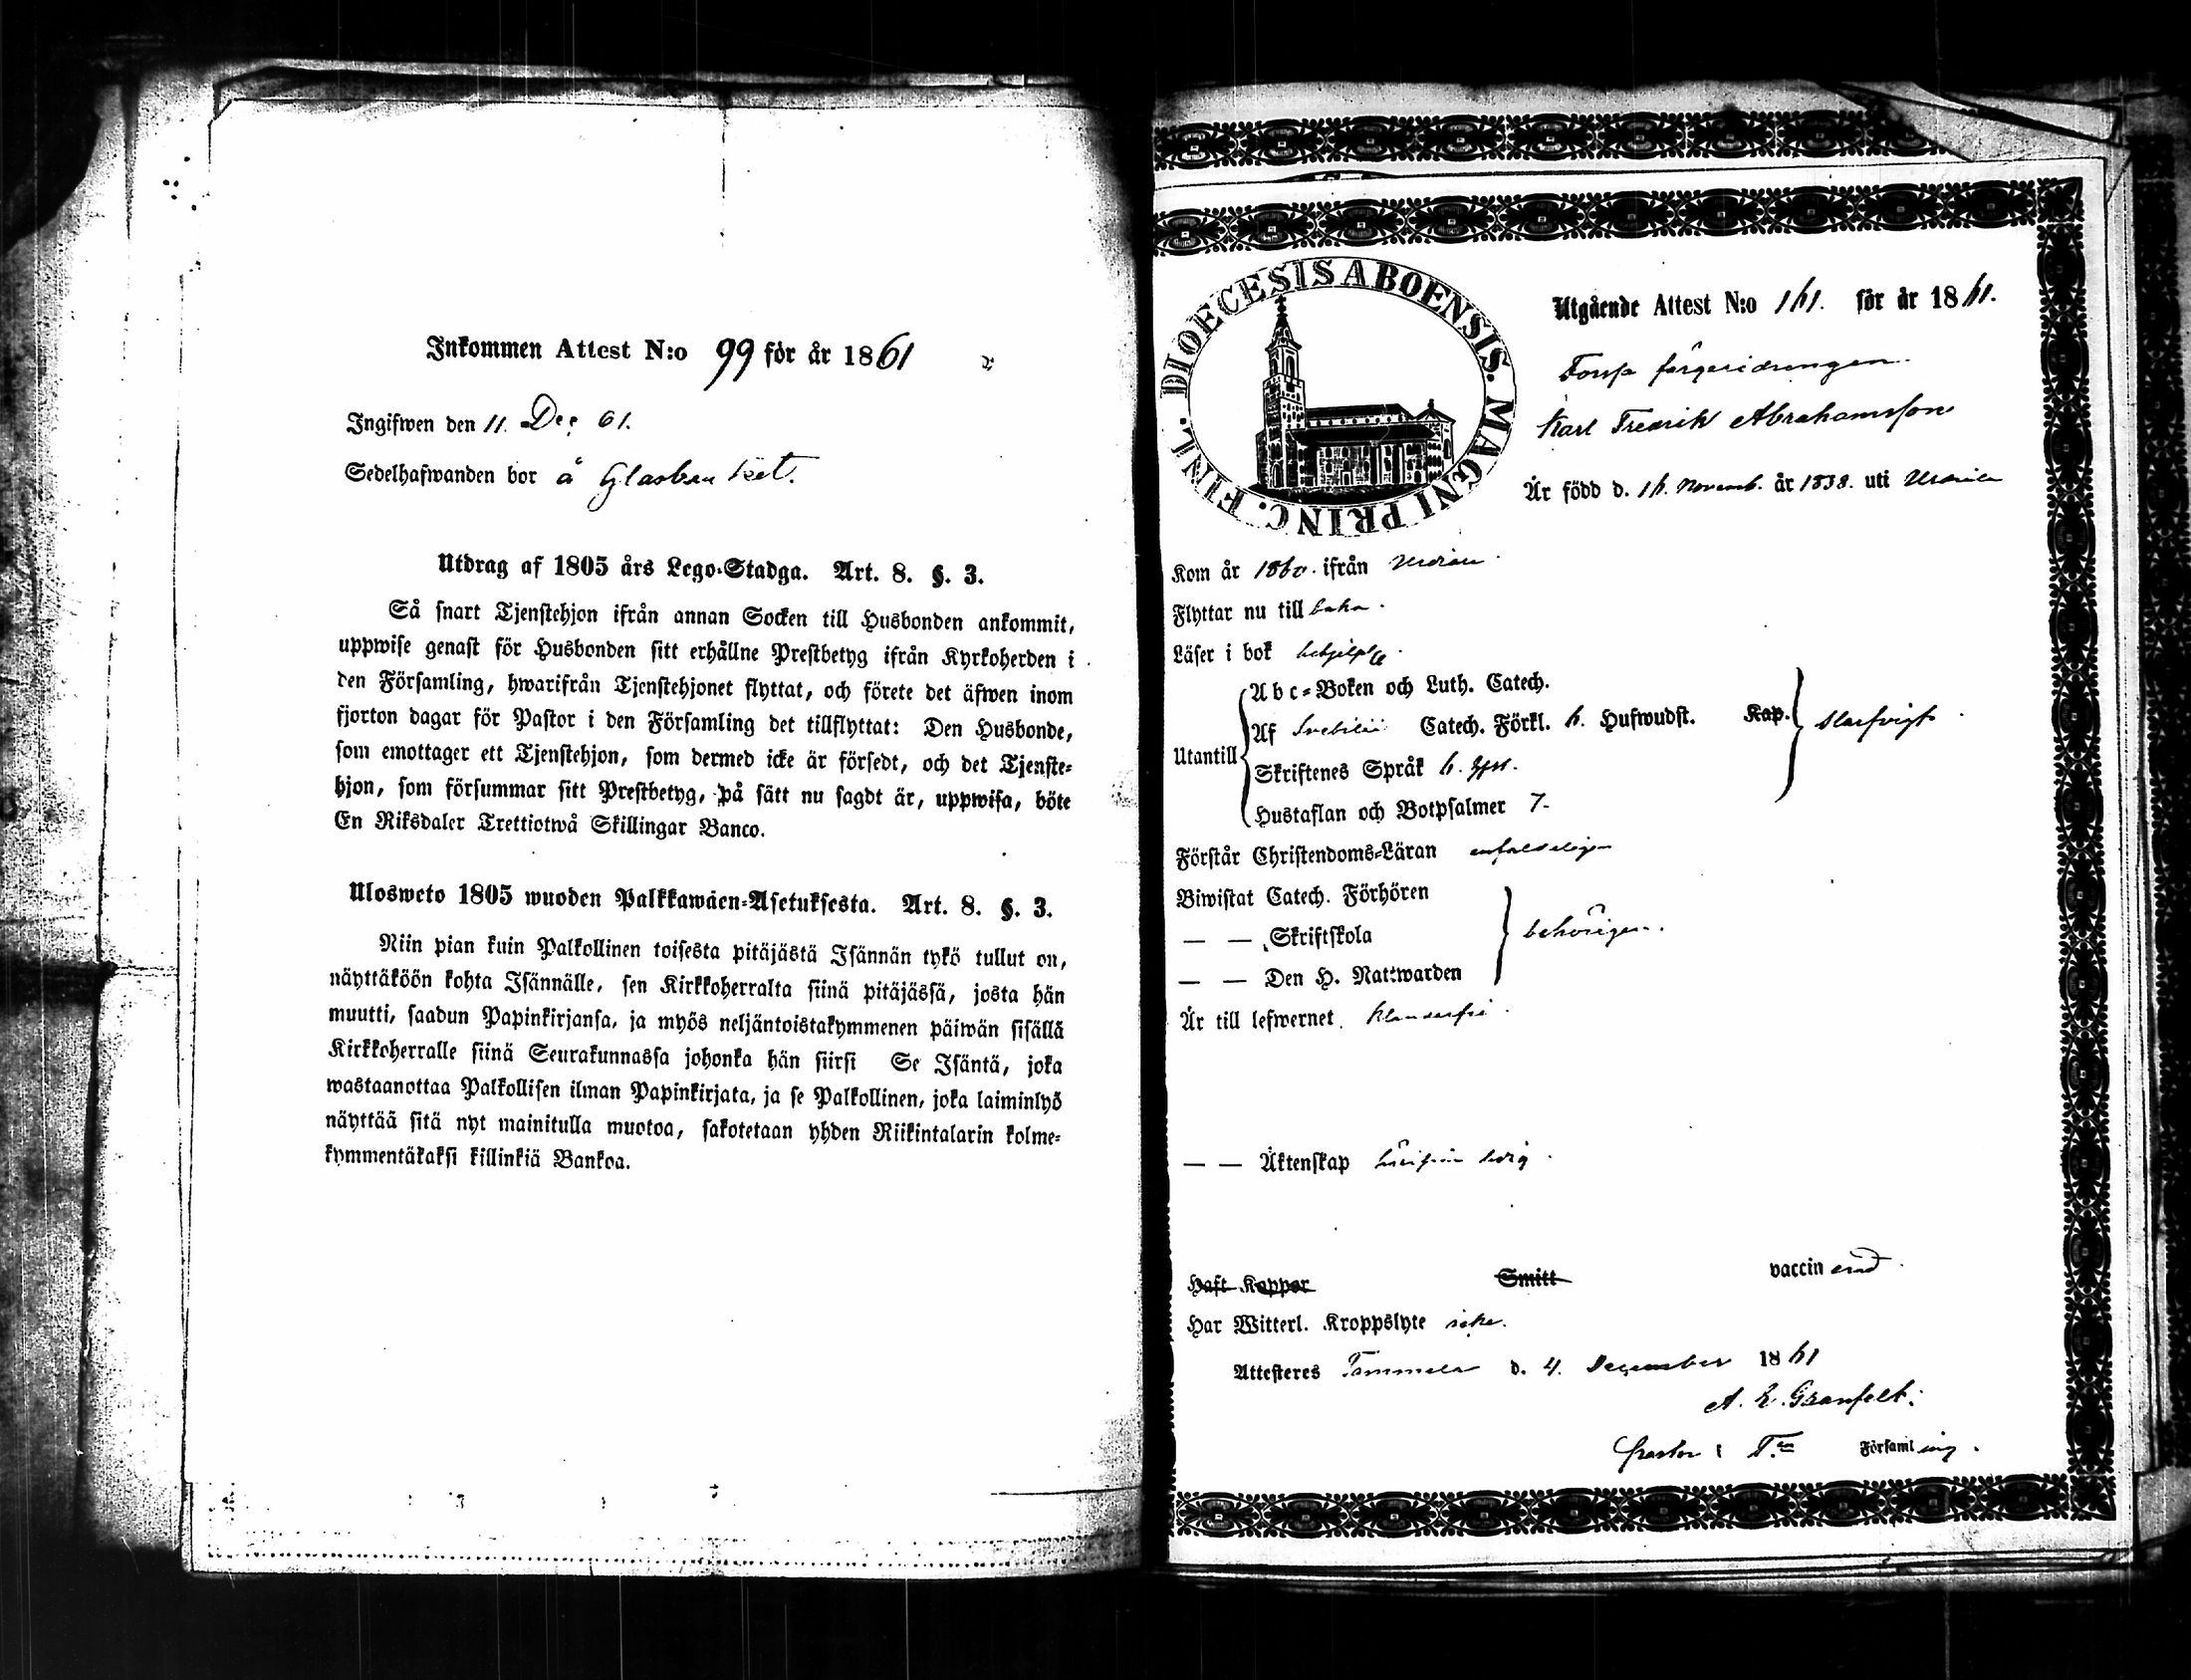 Inkommen Attest N:o 99 för år 1861
Ingifwen den 11. Dec 61.
Sedelhafwanden bor å Glasbruket.
Utdrag af 1805 års Lego-Stadga. Art. 8. §. 3.
Så snart Tjenstehjon ifrån annan Socken till Husbonden ankommit,
uppwise genast för Husbonden sitt erhållne Prestbetyg ifrån Kyrkoherden i
den Församling, hwarifrån Tjenstehjonet flyttat, och förete det äfwen inom
fjorton dagar för Pastor i den Församling det tillflyttat: Den Husbonde,
som emottager ett Tjenstehjon, som dermed icke är försedt, och det Tjenste-
hjon, som försummar sitt Prestbetyg, på sätt nu sagdt är, uppwisa, böte
En Riksdaler Trettiotwå Skillingar Banco.
Ulosweto 1805 wuoden Palkkawäen-Asetuksesta. Art. 8. §. 3.
Niin pian kuin Palkollinen toisesta pitäjästä Isännän tykö tullut on,
näyttäköön kohta Isännälle, sen Kirkkoherralta siinä pitäjässä, josta hän
muutti, saadun Papinkirjansa, ja myös neljäntoistakymmenen päiwän sisällä
Kirkkoherralle siinä Seurakunnassa johonka hän siirsi Se Isäntä, joka
wastaanottaa Palkollisen ilman Papinkirjata, ja se Palkollinen, joka laiminlyö
näyttää sitä nyt mainitulla muotoa, sakotetaan yhden Riikintalarin kolme-
kymmentäkaksi killinkiä Bankoa.
DIOECESIS ABOENSIS. MAGNI PRINC. FINL.
Utgående Attest N:o 161. för år 1861.
Forss färgeridrengen
Karl Fredrik Abrahamsson
Är född d. 16. Novemb. år 1838. uti Urdiala
Kom år 1860. ifrån Urdiala
Flyttar nu till baka.
Läser i bok behjelpl.
Abc-Boken och Luth. Catech.
Utantill Af Svebilii Catech. Förkl. 6. Hufwudst. Kap. klarfvigt
Skriftenes Språk 6.
Hustaflan och Botpsalmer 7.
Förstår Christendoms-Läran enfaldeligen
Biwistat Catech. Förhören
— — Skriftskola behörigen.
— — Den H. Nattwarden
Är till lefwernet klanderfri
— — Äktenskap ledig
Haft Koppor Smitt vaccinerad
Har Witterl. Kroppslyte icke.
Attesteres Tammela d. 4. December 1861
A. L. Granfelt.
Pastor i T:la Församling.